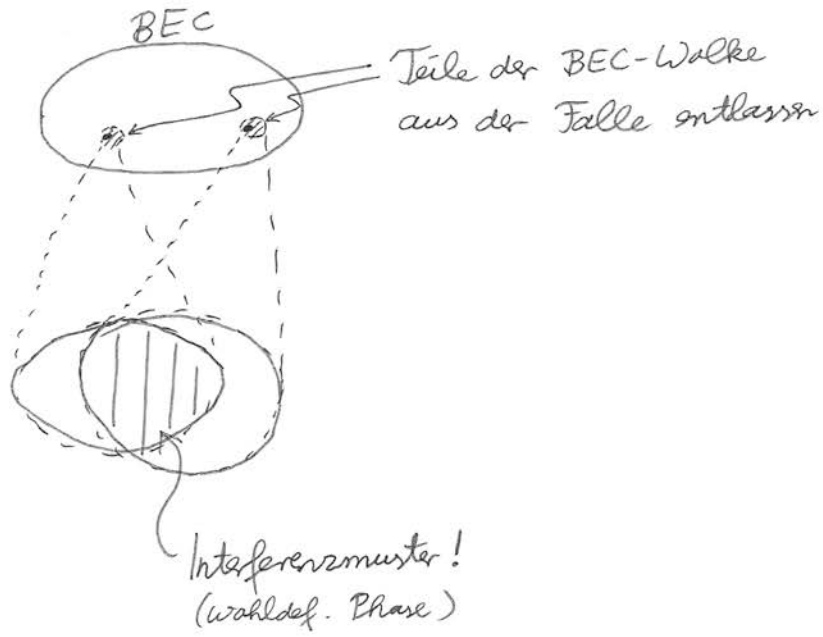 BEC
Teile der BEC-Wolke
aus der Falle entlassen
Interferenzmuster!
(wohldef. Phase)